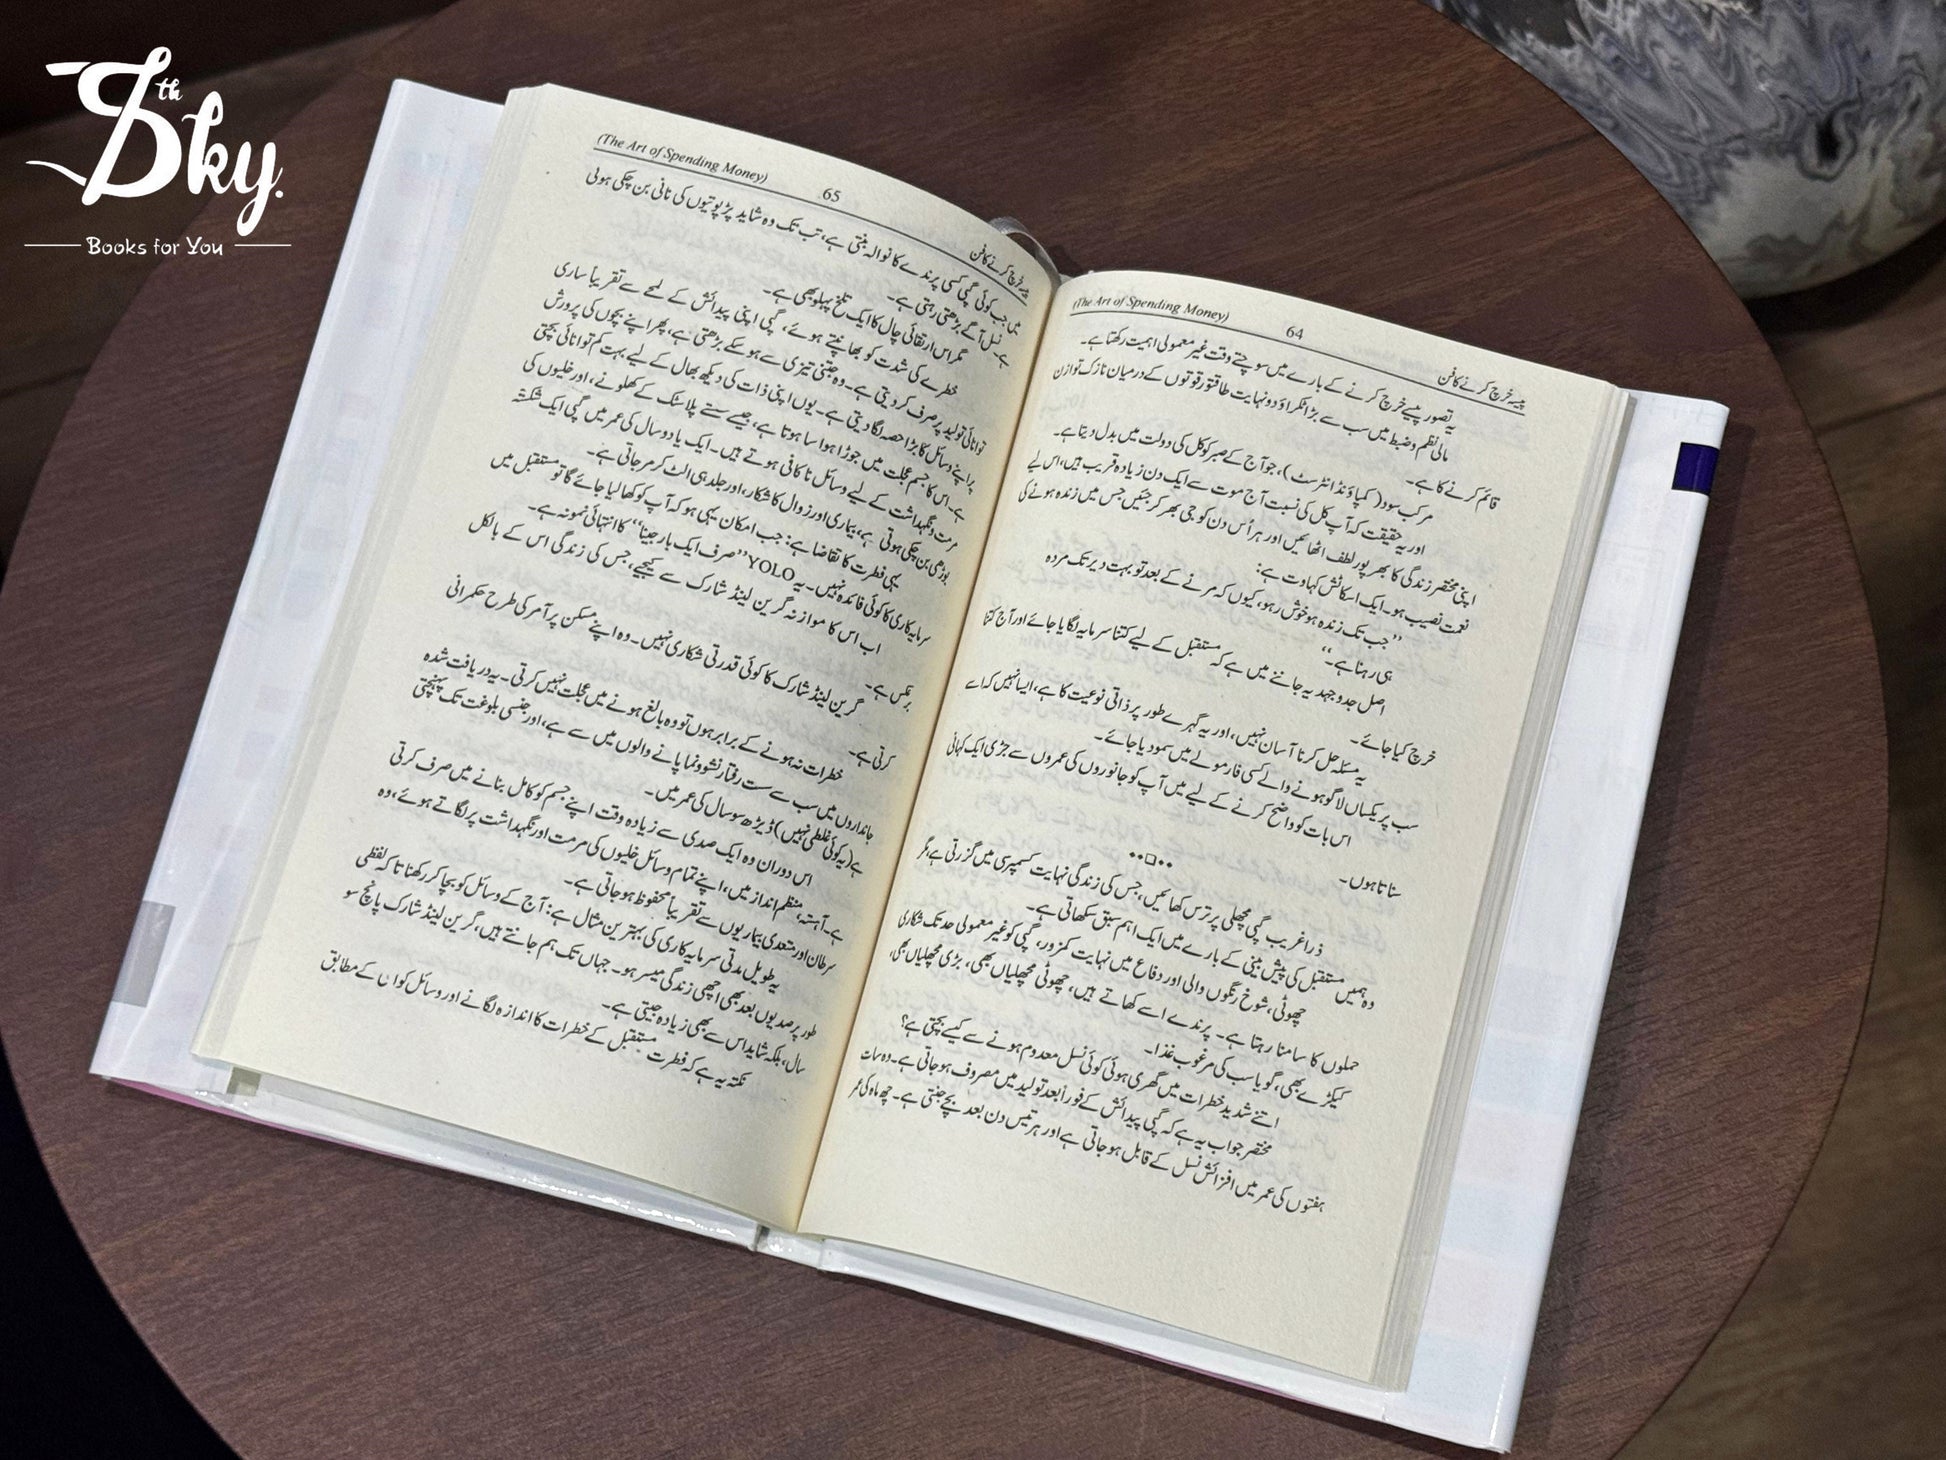 5th Sky.
Books for You
پیسہ خرچ کرنے کا فن 64 (The Art of Spending Money)
یہ تصور پیسے خرچ کرنے کے بارے میں سوچتے وقت غیر معمولی اہمیت رکھتا ہے۔
مالی نظم و ضبط میں سب سے بڑا ٹکراؤ دو نہایت طاقتور قوتوں کے درمیان نازک توازن
قائم کرنے کا ہے۔
مرکب سود (کمپاؤنڈ انٹرسٹ)، جو آج کے صبر کو کل کی دولت میں بدل دیتا ہے۔
اور یہ حقیقت کہ آپ کل کی نسبت آج موت سے ایک دن زیادہ قریب ہیں، اس لیے
اپنی مختصر زندگی کا بھرپور لطف اٹھائیں اور ہر اُس دن کو جی بھر کر جئیں جس میں زندہ ہونے کی
نعمت نصیب ہو۔ ایک اسکاٹش کہاوت ہے:
”جب تک زندہ ہو خوش رہو، کیوں کہ مرنے کے بعد تو بہت دیر تک مردہ
ہی رہنا ہے۔“
اصل جدوجہد یہ جاننے میں ہے کہ مستقبل کے لیے کتنا سرمایہ لگایا جائے اور آج کتنا
خرچ کیا جائے۔
یہ مسئلہ حل کرنا آسان نہیں، اور یہ گہرے طور پر ذاتی نوعیت کا ہے، ایسا نہیں کہ اسے
سب پر یکساں لاگو ہونے والے کسی فارمولے میں سمو دیا جائے۔
اس بات کو واضح کرنے کے لیے میں آپ کو جانوروں کی عمروں سے جڑی ایک کہانی
سناتا ہوں۔
ذرا غریب گپی مچھلی پر ترس کھائیں، جس کی زندگی نہایت کسمپرسی میں گزرتی ہے، مگر
وہ ہمیں مستقبل کی پیش بینی کے بارے میں ایک اہم سبق سکھاتی ہے۔
چھوٹی، شوخ رنگوں والی اور دفاع میں نہایت کمزور، گپی کو غیر معمولی حد تک شکاری
حملوں کا سامنا رہتا ہے۔ پرندے اسے کھاتے ہیں، چھوٹی مچھلیاں بھی، بڑی مچھلیاں بھی،
کیکڑے بھی، گویا سب کی مرغوب غذا۔
اتنے شدید خطرات میں گھری ہوئی کوئی نسل معدوم ہونے سے کیسے بچتی ہے؟
مختصر جواب یہ ہے کہ گپی پیدائش کے فوراً بعد تولید میں مصروف ہو جاتی ہے۔ وہ سات
ہفتوں کی عمر میں افزائش نسل کے قابل ہو جاتی ہے اور ہر تیس دن بعد بچے جنتی ہے۔ چھ ماہ کی عمر
پیسہ خرچ کرنے کا فن 65 (The Art of Spending Money)
میں جب کوئی گپی کسی پرندے کا نوالہ بنتی ہے، تب تک وہ شاید پڑپوتیوں کی نانی بن چکی ہوتی
ہے۔ نسل آگے بڑھتی رہتی ہے۔
مگر اس ارتقائی چال کا ایک تلخ پہلو بھی ہے۔
خطرے کی شدت کو بھانپتے ہوئے، گپی اپنی پیدائش کے لمحے سے تقریباً ساری
توانائی تولید پر صرف کر دیتی ہے۔ وہ جتنی تیزی سے ہو سکے بڑھتی ہے، پھر اپنے بچوں کی پرورش
پر اپنے وسائل کا بڑا حصہ لگا دیتی ہے۔ یوں اپنی ذات کی دیکھ بھال کے لیے بہت کم توانائی بچتی
ہے۔ اس کا جسم عجلت میں جوڑا ہوا سا ہوتا ہے، جیسے سستے پلاسٹک کے کھلونے، اور خلیوں کی
مرمت و نگہداشت کے لیے وسائل ناکافی ہوتے ہیں۔ ایک یا دو سال کی عمر میں گپی ایک شکستہ
بوڑھی بن چکی ہوتی ہے، بیماری اور زوال کا شکار، اور جلد ہی الٹ کر مر جاتی ہے۔
یہی فطرت کا تقاضا ہے: جب امکان یہی ہو کہ آپ کو کھا لیا جائے گا تو مستقبل میں
سرمایہ کاری کا کوئی فائدہ نہیں۔ یہ YOLO ”صرف ایک بار جینا“ کا انتہائی نمونہ ہے۔
اب اس کا موازنہ گرین لینڈ شارک سے کیجیے، جس کی زندگی اس کے بالکل
برعکس ہے۔
گرین لینڈ شارک کا کوئی قدرتی شکاری نہیں۔ وہ اپنے مسکن پر آمر کی طرح حکمرانی
کرتی ہے۔
خطرات نہ ہونے کے برابر ہوں تو وہ بالغ ہونے میں عجلت نہیں کرتی۔ یہ دریافت شدہ
جانداروں میں سب سے سست رفتار نشوونما پانے والوں میں سے ہے، اور جنسی بلوغت تک پہنچتی
ہے (یہ کوئی غلطی نہیں) ڈیڑھ سو سال کی عمر میں۔
اس دوران وہ ایک صدی سے زیادہ وقت اپنے جسم کو کامل بنانے میں صرف کرتی
ہے۔ آہستہ، منظم انداز میں، اپنے تمام وسائل خلیوں کی مرمت اور نگہداشت پر لگاتے ہوئے، وہ
سرطان اور متعدی بیماریوں سے تقریباً محفوظ ہو جاتی ہے۔
یہ طویل مدتی سرمایہ کاری کی بہترین مثال ہے: آج کے وسائل کو بچا کر رکھنا تاکہ لفظی
طور پر صدیوں بعد بھی اچھی زندگی میسر ہو۔ جہاں تک ہم جانتے ہیں، گرین لینڈ شارک پانچ سو
سال، بلکہ شاید اس سے بھی زیادہ جیتی ہے۔
نکتہ یہ ہے کہ فطرت مستقبل کے خطرات کا اندازہ لگانے اور وسائل کو ان کے مطابق